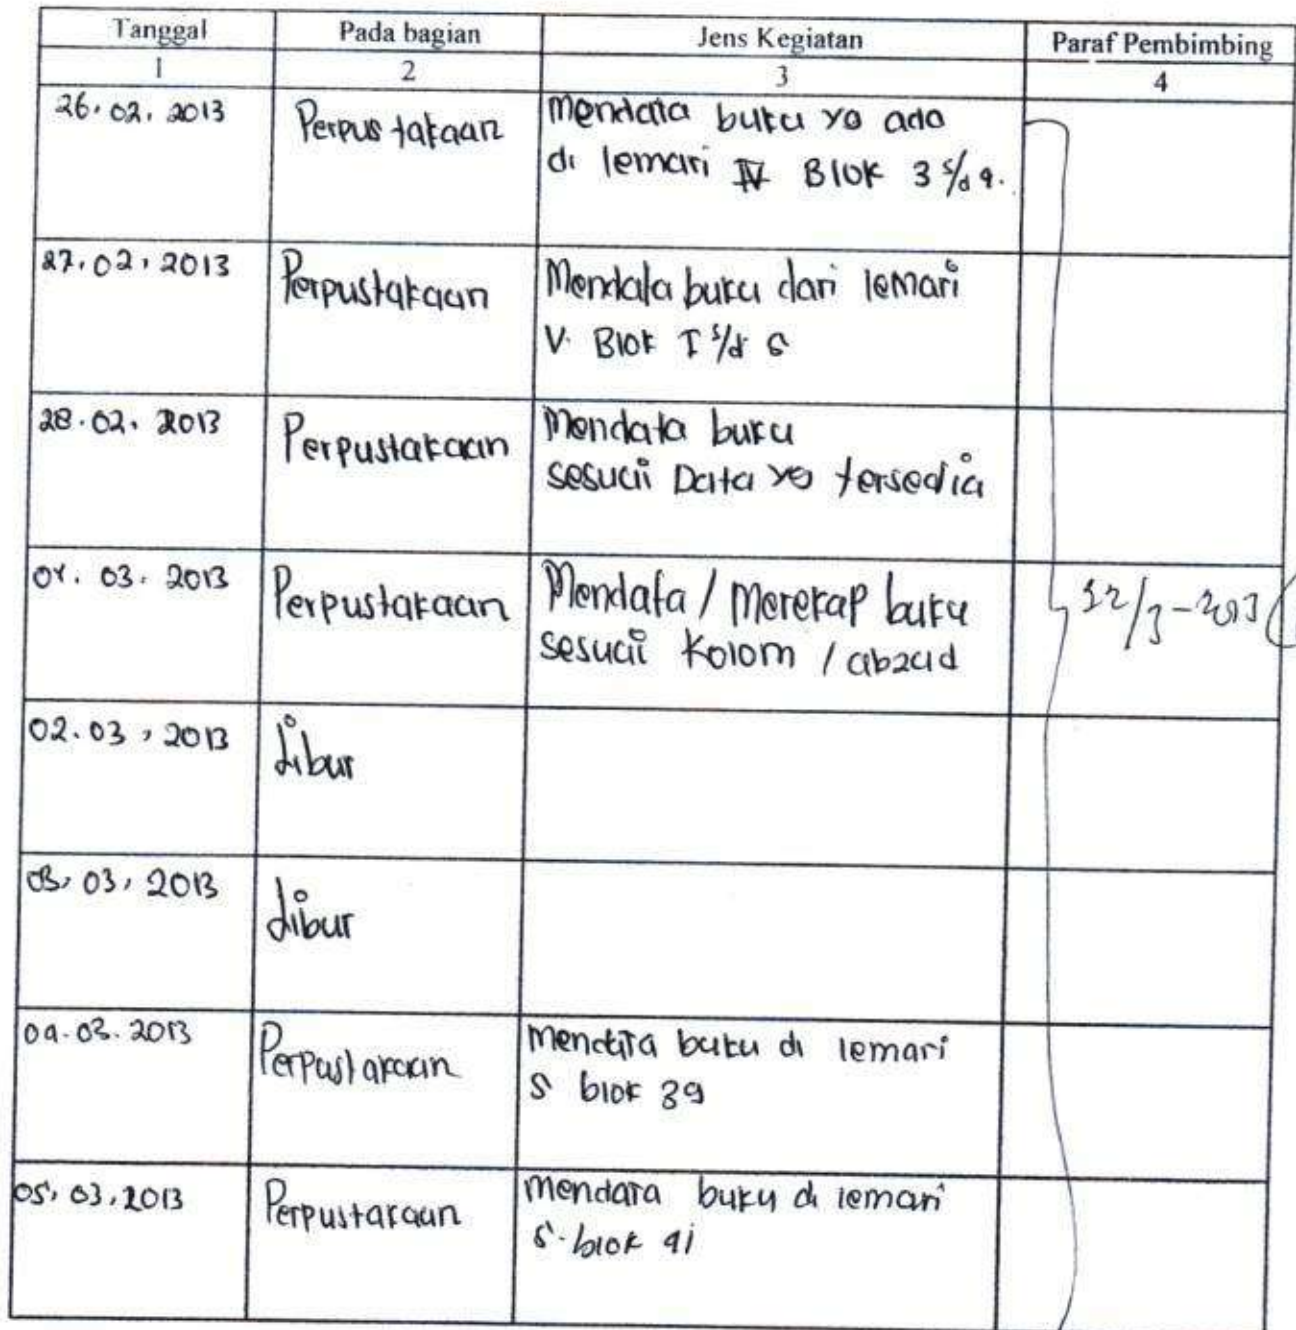 Tanggal Pada bagian Jens Kegiatan Paraf Pembimbing
1 2 3 4
26.02.2013 Perpustakaan Mendata buku yg ada
di lemari IV Blok 3 s/d 4.
27.02.2013 Perpustakaan Mendata buku dari lemari
V. Blok I s/d 5
28.02.2013 Perpustakaan Mendata buku
sesuai Data yg tersedia
01.03.2013 Perpustakaan Mendata / Merekap buku
sesuai Kolom / abzad
02.03.2013 Libur
03.03.2013 Libur
04.03.2013 Perpustakaan Mendata buku di lemari
5 blok 39
05.03.2013 Perpustakaan Mendara buku di lemari
5. blok 41